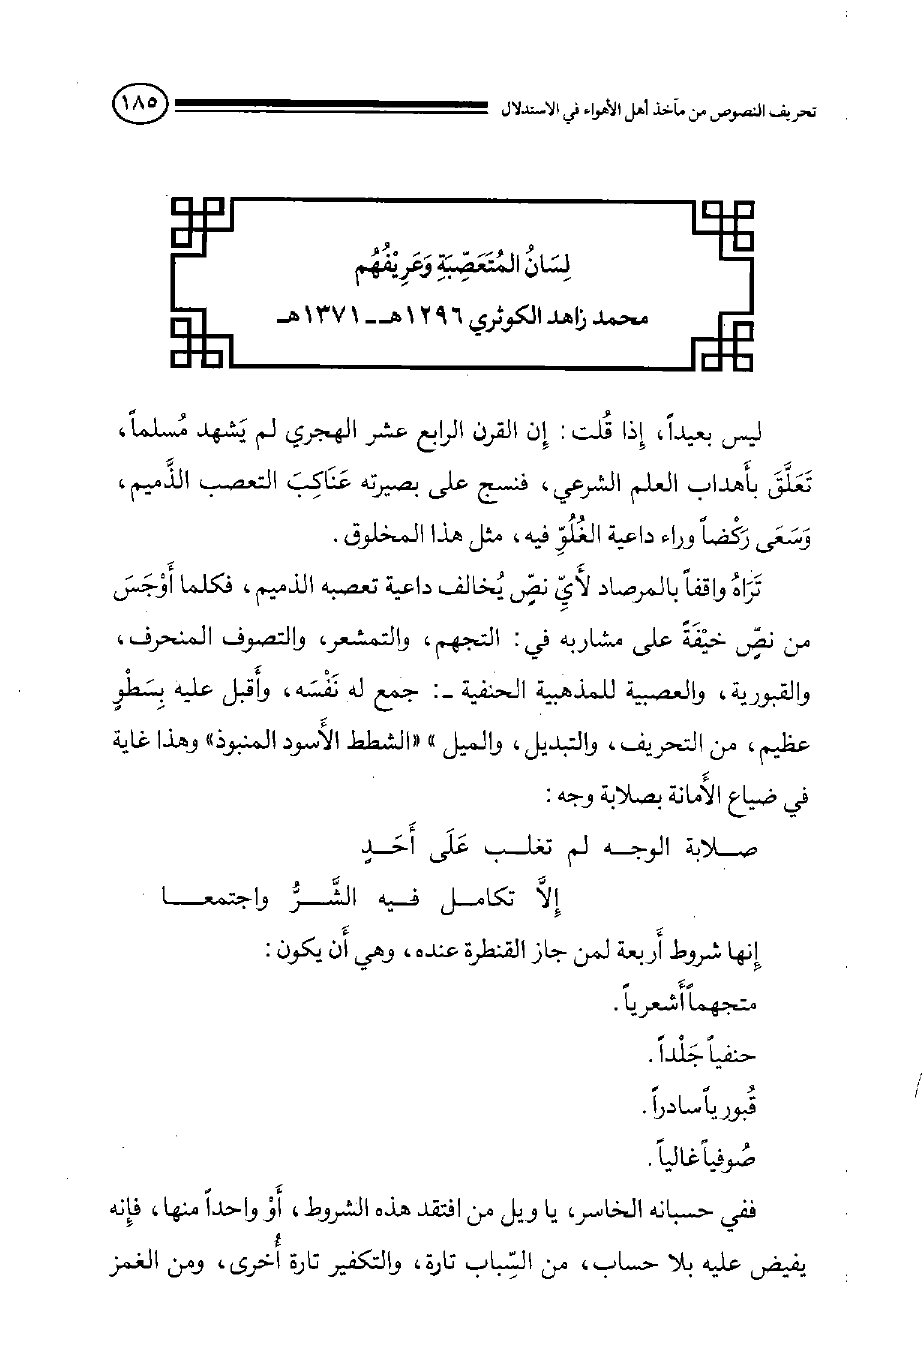 تحريف النصوص من مآخذ أهل الأهواء في الاستدلال ١٨٥
لِسَانُ المُتَعَصِّبَةِ وَعَرِيْفُهُم
محمد زاهد الكوثري ١٢٩٦هـ ــ ١٣٧١هـ
ليس بعيداً، إذا قُلت: إن القرن الرابع عشر الهجري لم يَشهد مُسلماً،
تَعَلَّقَ بأهداب العلم الشرعي، فنسج على بصيرته عَنَاكِبَ التعصب الذَّميم،
وَسَعَى رَكْضاً وراء داعية الغُلُوِّ فيه، مثل هذا المخلوق.
تَرَاهُ واقفاً بالمرصاد لأَيِّ نصٍّ يُخالف داعية تعصبه الذميم، فكلما أَوْجَسَ
من نصٍّ خيْفَةً على مشاربه في: التجهم، والتمشعر، والتصوف المنحرف،
والقبورية، والعصبية للمذهبية الحنفية ـ: جمع له نَفْسَه، وأَقبل عليه بِسَطْوٍ
عظيم، من التحريف، والتبديل، والميل» «الشطط الأَسود المنبوذ» وهذا غاية
في ضياع الأَمانة بصلابة وجه:
صـلابة الوجـه لم تغلـب عَلَى أَحَـدٍ
إلاَّ تكامـل فـيه الشَّـرُّ واجتمعـا
إنها شروط أَربعة لمن جاز القنطرة عنده، وهي أَن يكون:
متجهماً أَشعرياً.
حنفياً جَلْداً.
قُبورياً سادراً.
صُوفياً غالياً.
ففي حسبانه الخاسر، يا ويل من افتقد هذه الشروط، أَوْ واحداً منها، فإنه
يفيض عليه بلا حساب، من السِّباب تارة، والتكفير تارة أُخرى، ومن الغمز